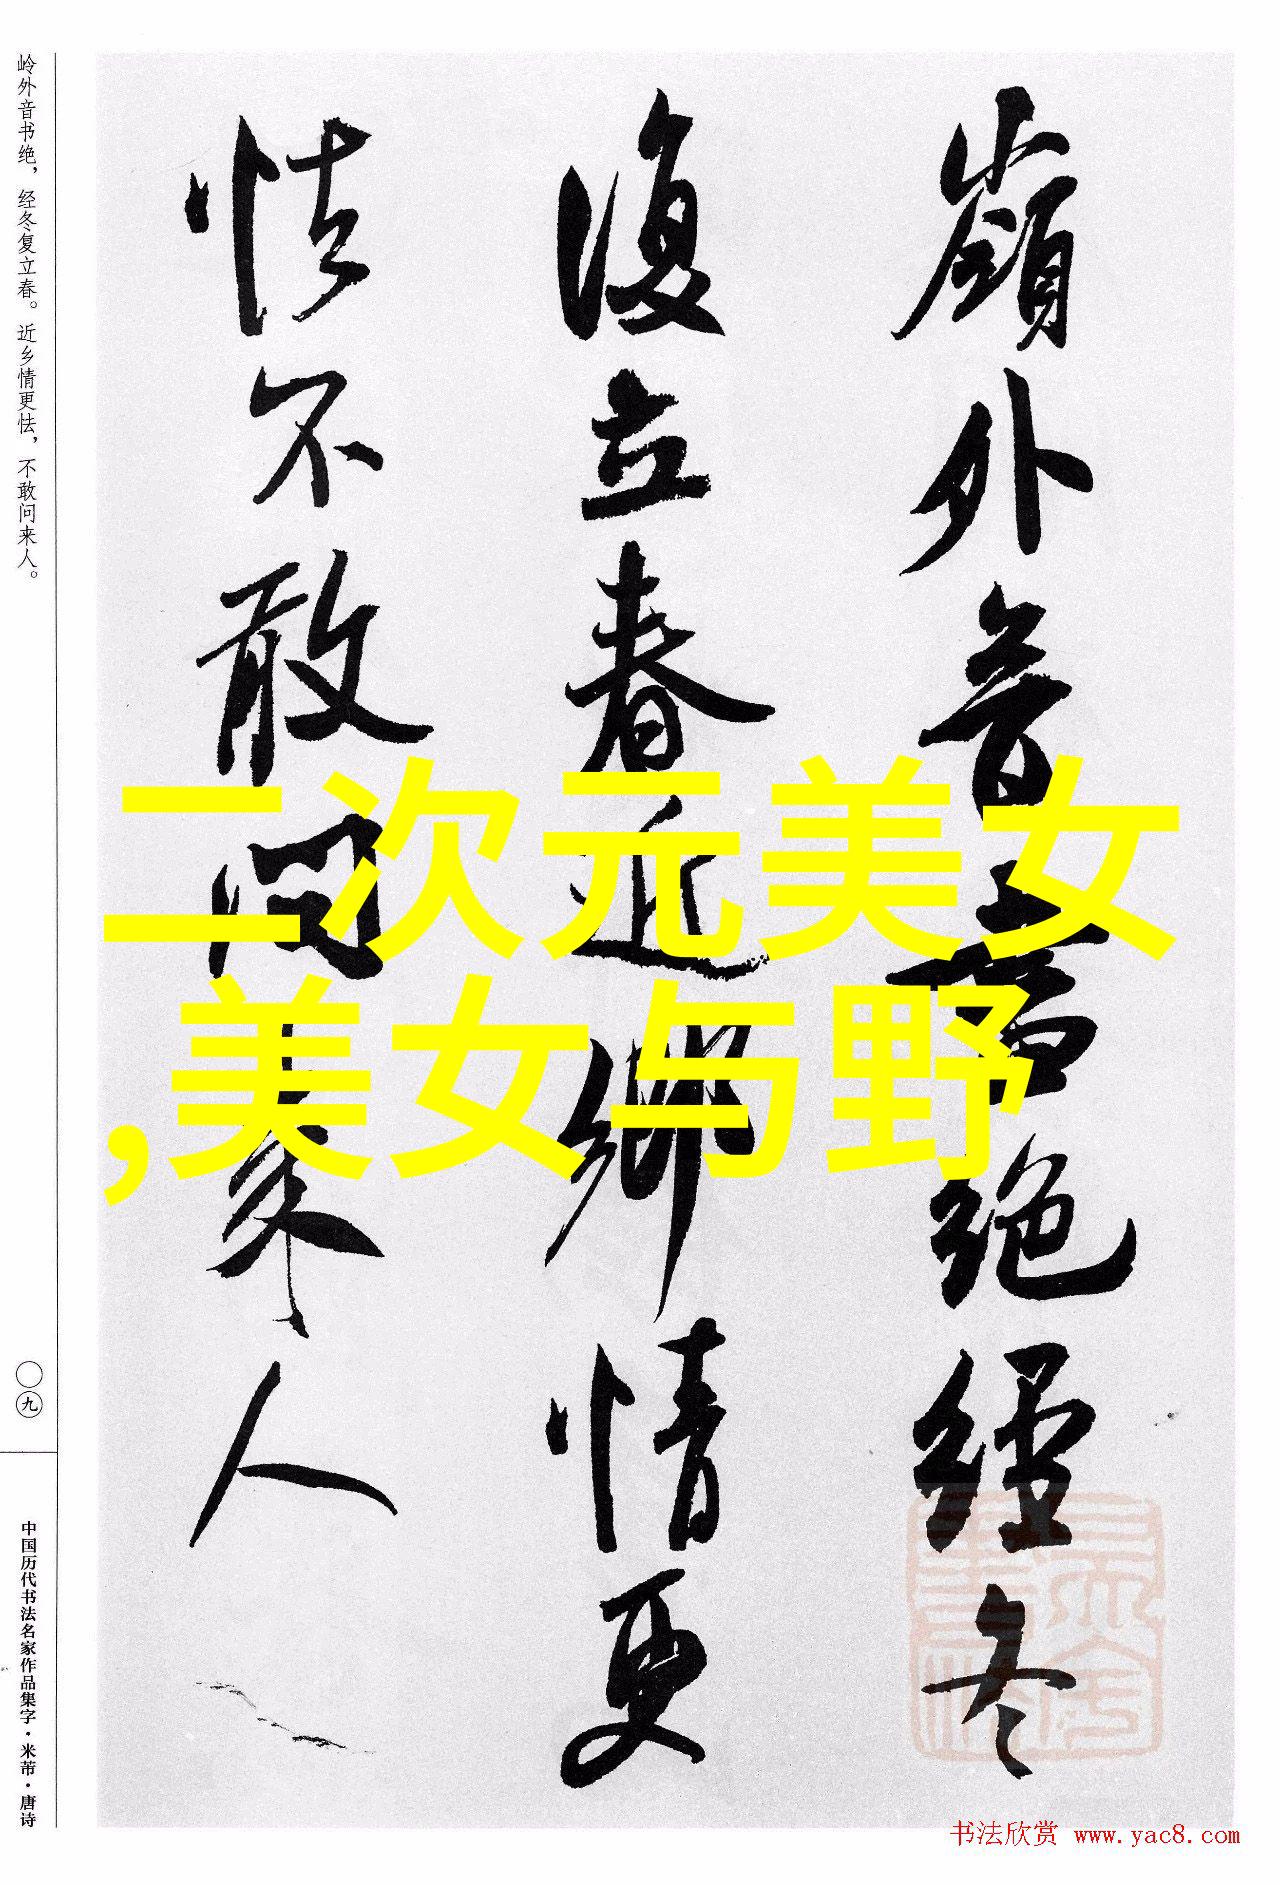 嶺外音書绝經冬
復立春近鄉情更
怯不敢問来人
岭外音书绝，经冬复立春。近乡情更怯，不敢问来人。
〇九
中国历代书法名家作品集字·米芾·唐诗
二次元美女
,美女与野
书法欣赏 www.yac8.com